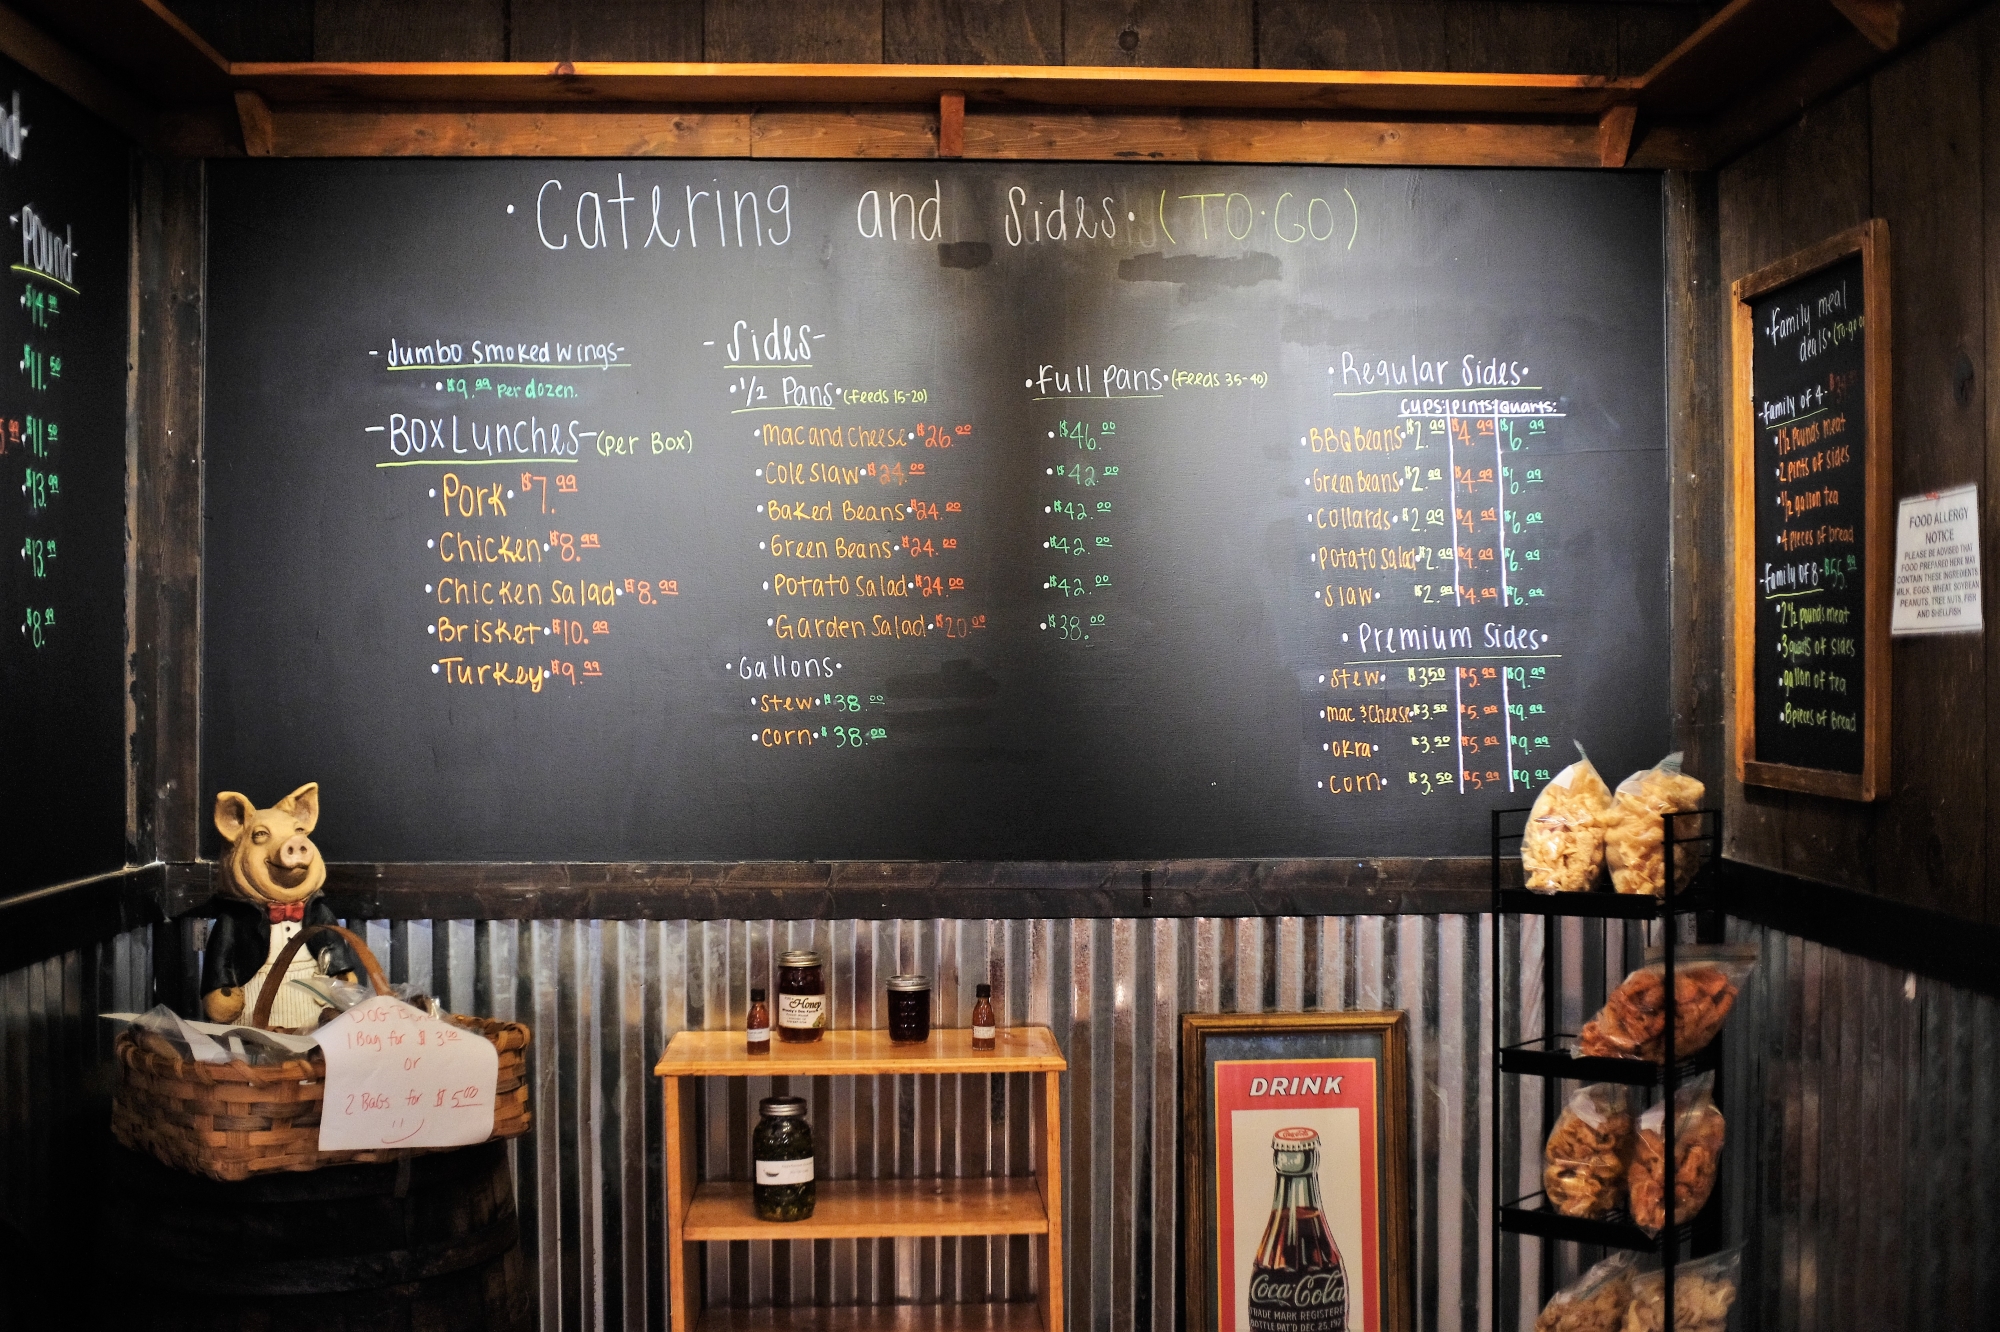 Pound-
$14.99
$11.50
$11.50
$13.99
$13.99
$8.99
·Catering and Sides·(TO·GO)
-Jumbo Smoked Wings-
·$9.99 per dozen.
-Box Lunches-(per Box)
·Pork·$7.99
·Chicken·$8.99
·Chicken Salad·$8.99
·Brisket·$10.99
·Turkey·$9.99
-Sides-
·1/2 Pans·(feeds 15-20)
·Mac and Cheese·$26.00
·Cole Slaw·$24.00
·Baked Beans·$24.00
·Green Beans·$24.00
·Potato Salad·$24.00
·Garden Salad·$20.00
·Gallons·
·Stew·$38.00
·Corn·$38.00
·Full Pans·(Feeds 35-40)
·$46.00
·$42.00
·$42.00
·$42.00
·$42.00
·$38.00
·Regular Sides·
Cups: Pints: Quarts:
·BBQ Beans·$2.99 $4.99 $6.99
·Green Beans·$2.99 $4.99 $6.99
·Collards·$2.99 $4.99 $6.99
·Potato Salad·$2.99 $4.99 $6.99
·Slaw· $2.99 $4.99 $6.99
·Premium Sides·
·Stew· $3.50 $5.99 $9.99
·Mac & Cheese·$3.50 $5.99 $9.99
·Okra· $3.50 $5.99 $9.99
·Corn· $3.50 $5.99 $9.99
·Family meal
deals·(To·go
-Family of 4-
·1½ pounds meat
·2 pints of sides
·½ gallon tea
·4 pieces of bread
-Family of 8-$55.99
·2½ pounds meat
·3 quarts of sides
·gallon of tea
·8 pieces of bread
FOOD ALLERGY
NOTICE
PLEASE BE ADVISED THAT
FOOD PREPARED HERE MAY
CONTAIN THESE INGREDIENTS:
MILK, EGGS, WHEAT, SOYBEAN,
PEANUTS, TREE NUTS, FISH
AND SHELLFISH
DOG
1 Bag for $3.00
or
2 Bags for $5.00
Honey
DRINK
Coca-Cola
Coca-Cola
TRADE MARK REGISTERED
BOTTLE PAT'D DEC. 25, 192